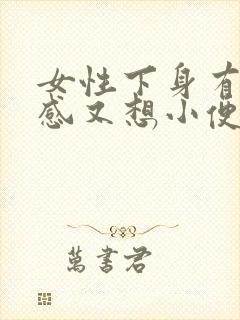 女性下身有
感又想小便
萬書君